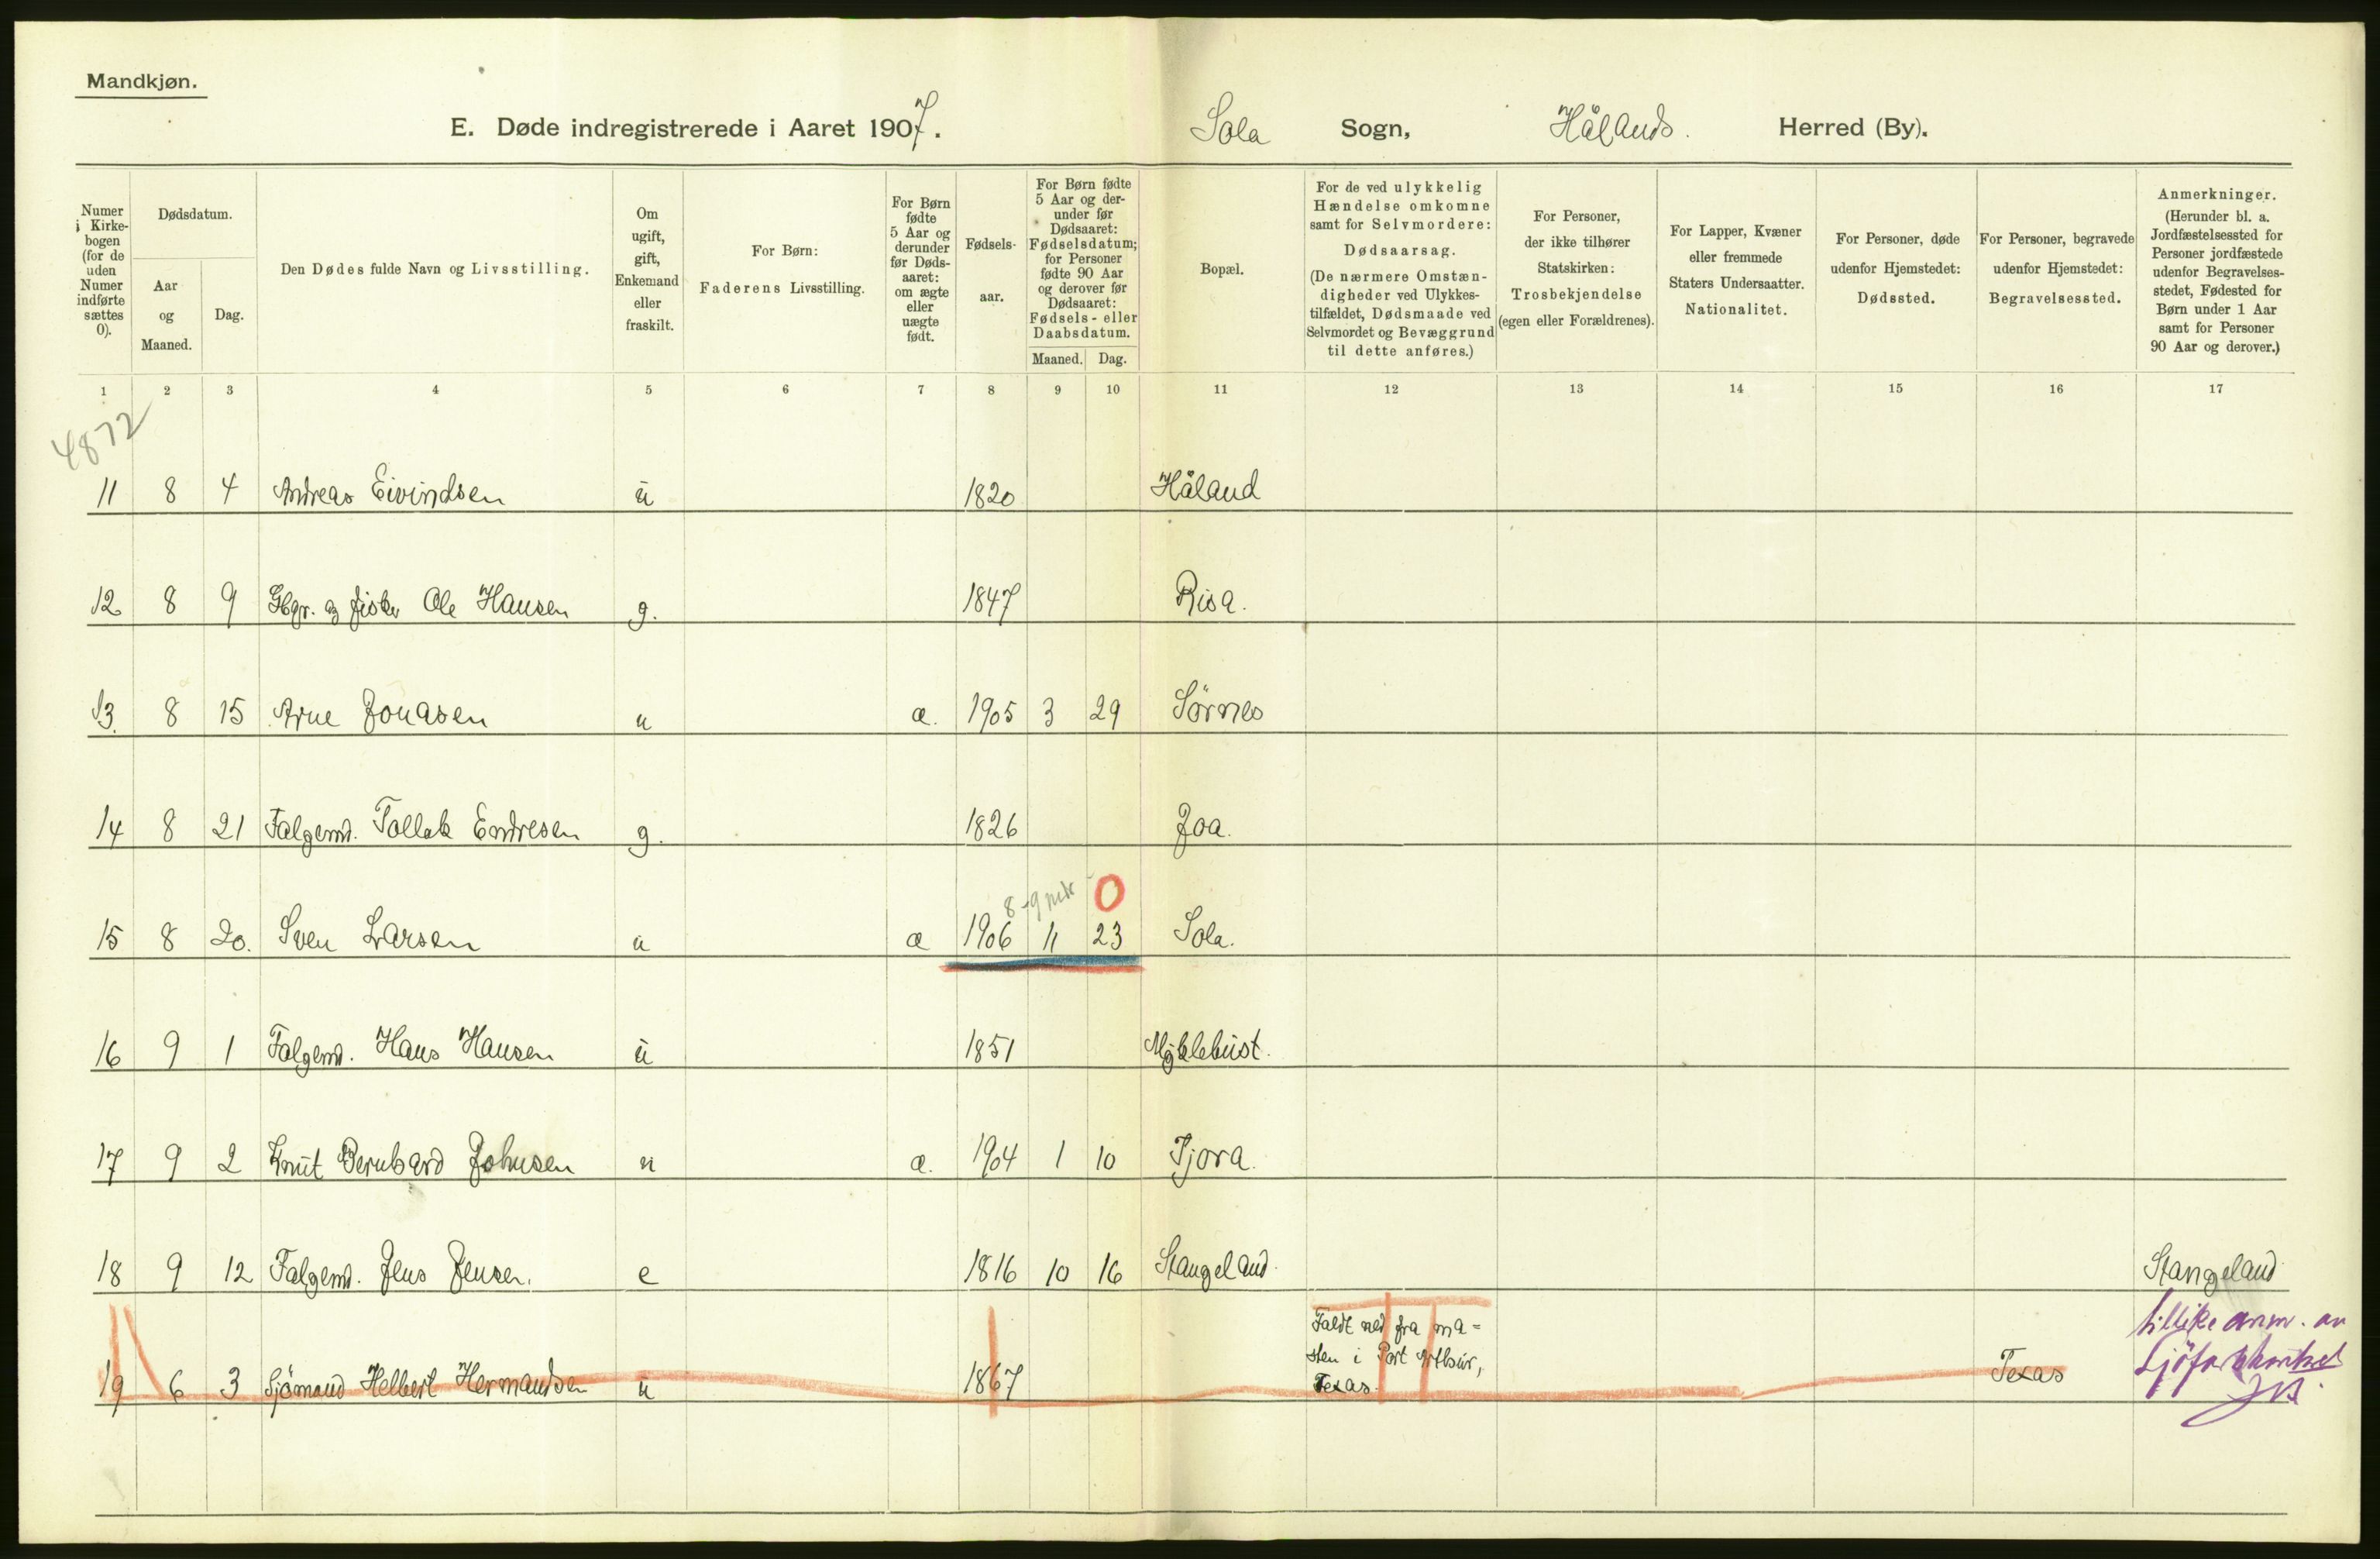 Mandkjøn.
E. Døde indregistrerede i Aaret 1907. Sola Sogn, Hålands. Herred (By).
Numer i Kirkebogen (for de uden Numer indførte sættes 0).
Dødsdatum.
Aar og Maaned.
Dag.
Den Dødes fulde Navn og Livsstilling.
Om ugift, gift, Enkemand eller fraskilt.
For Børn: Faderens Livsstilling.
For Børn fødte 5 Aar og derunder før Dødsaaret: om ægte eller uægte født.
Fødselsaar.
For Børn fødte 5 Aar og derunder før Dødsaaret: Fødselsdatum; for Personer fødte 90 Aar og derover før Dødsaaret: Fødsels- eller Daabsdatum.
Maaned. Dag.
Bopæl.
For de ved ulykkelig Hændelse omkomne samt for Selvmordere: Dødsaarsag. (De nærmere Omstændigheder ved Ulykkestilfældet, Dødsmaade ved Selvmordet og Bevæggrund til dette anføres.)
For Personer, der ikke tilhører Statskirken: Trosbekjendelse (egen eller Forældrenes).
For Lapper, Kvæner eller fremmede Staters Undersaatter. Nationalitet.
For Personer, døde udenfor Hjemstedet: Dødssted.
For Personer, begravede udenfor Hjemstedet: Begravelsessted.
Anmerkninger. (Herunder bl. a. Jordfæstelsessted for Personer jordfæstede udenfor Begravelsesstedet, Fødested for Børn under 1 Aar samt for Personer 90 Aar og derover.)
1 2 3 4 5 6 7 8 9 10 11 12 13 14 15 16 17
4872
11 8 4 Andreas Eivindsen u 1820 Håland
12 8 9 Gbgr. og fisker Ole Hansen g. 1847 Risa.
13. 8 15 Arne Jonasen u æ. 1905 3 29 Sörnes
14 8 21 Folgemd. Tollak Endresen g. 1826 Joa.
8-9 mdr 0
15 8 20. Sven Larsen u æ 1906 11 23 Sola.
16 9 1 Folgemd. Hans Hansen u 1851 Myklebust.
17 9 2 Knut Bernhard Johnsen u æ. 1904 1 10 Tjora.
18 9 12 Folgemd. Jens Jensen. e 1816 10 16 Stangeland. Stangeland
19 6 3 Sjömand Helbert Hermandsen u 1867 Faldt ned fra ma=
sten i Port Arthur,
Texas. Texas
tillike anm. av
Sjöfartskontoret